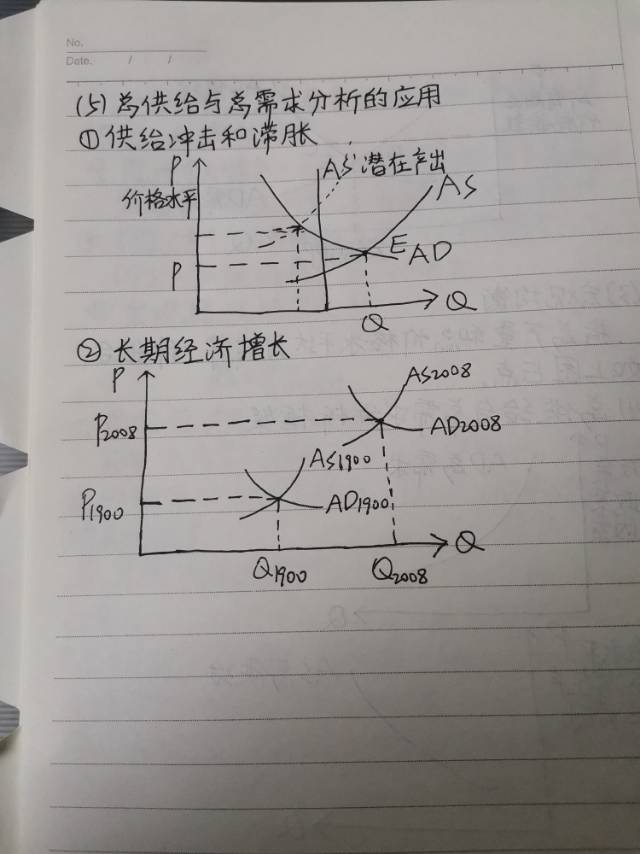 No.
Date. / /
(5) 总供给与总需求分析的应用
① 供给冲击和滞胀
P
AS' 潜在产出
价格水平
AS
E
AD
P
Q
Q
② 长期经济增长
P
AS2008
P2008
AD2008
AS1900
P1900
AD1900
Q
Q1900
Q2008